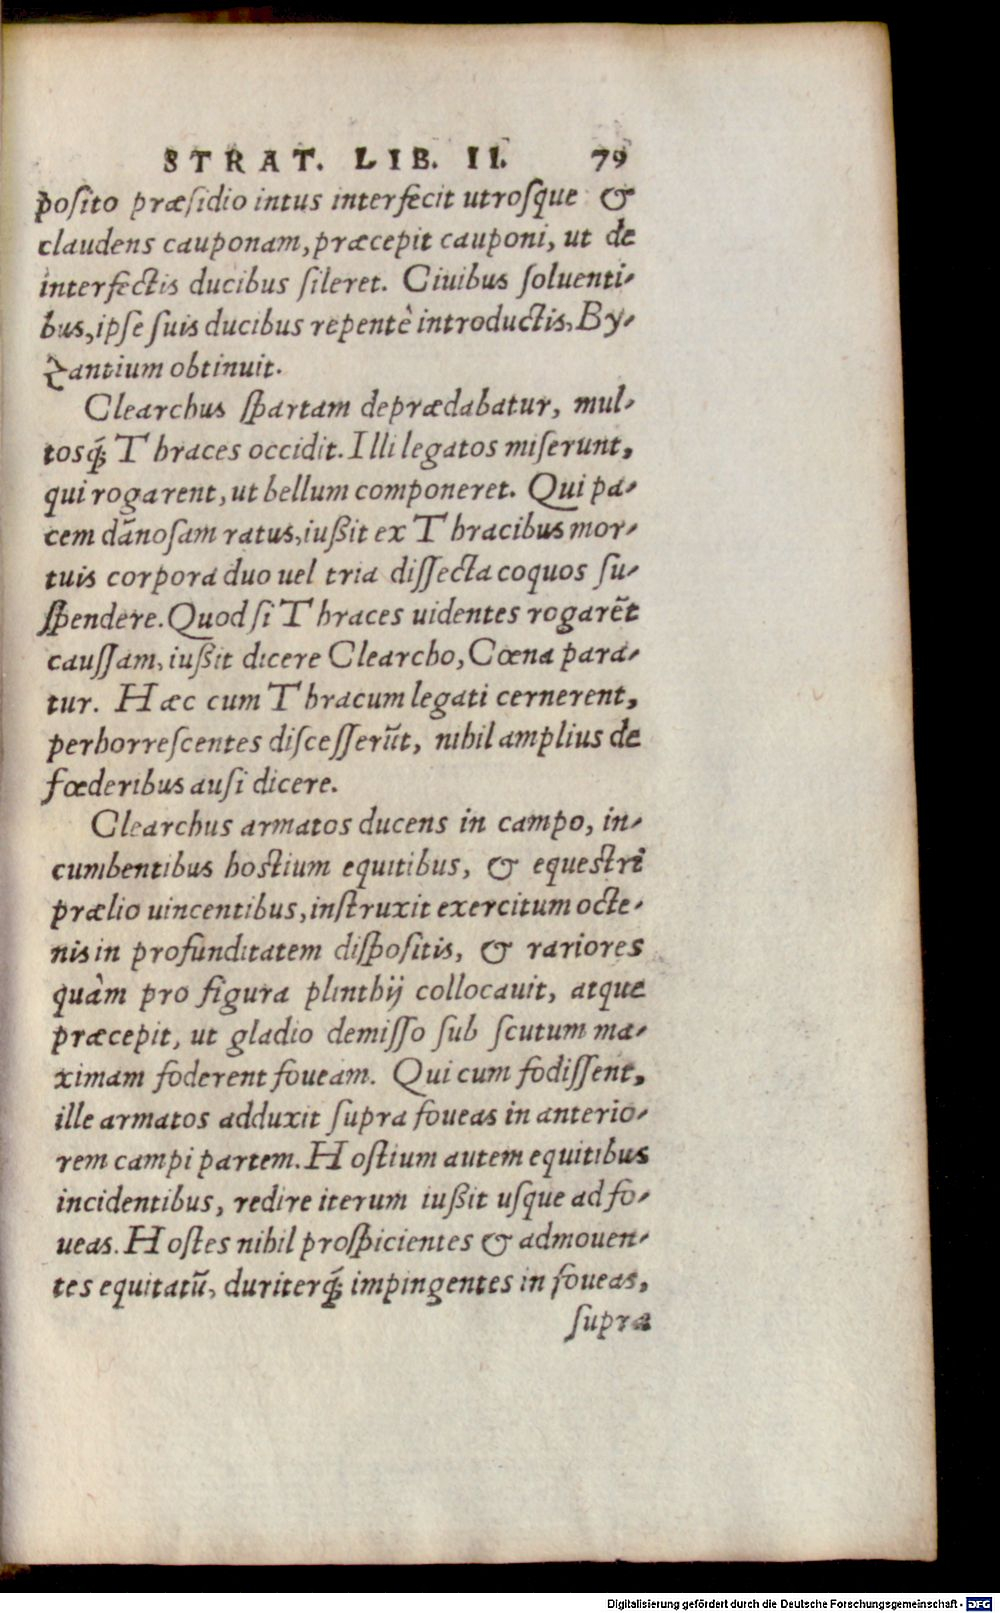 STRAT. LIB. II. 79
posito præsidio intus interfecit utrosque &
claudens cauponam, præcepit cauponi, ut de
interfectis ducibus sileret. Ciuibus soluenti-
bus, ipse suis ducibus repentè introductis, By-
zantium obtinuit.
Clearchus spartam deprædabatur, mul-
tosq́; Thraces occidit. Illi legatos miserunt,
qui rogarent, ut bellum componeret. Qui pa-
cem dānosam ratus, iußit ex Thracibus mor-
tuis corpora duo uel tria dissecta coquos su-
spendere. Quod si Thraces uidentes rogarēt
caussam, iußit dicere Clearcho, Cœna para-
tur. Hæc cum Thracum legati cernerent,
perhorrescentes discesserūt, nihil amplius de
fœderibus ausi dicere.
Clearchus armatos ducens in campo, in-
cumbentibus hostium equitibus, & equestri
prælio uincentibus, instruxit exercitum octe-
nis in profunditatem dispositis, & rariores
quàm pro figura plinthij collocauit, atque
præcepit, ut gladio demisso sub scutum ma-
ximam foderent foueam. Qui cum fodissent,
ille armatos adduxit supra foueas in anterio-
rem campi partem. Hostium autem equitibus
incidentibus, redire iterum iußit usque ad fo-
ueas. Hostes nihil prospicientes & admouen-
tes equitatū, duriterq́; impingentes in foueas,
supra
Digitalisierung gefördert durch die Deutsche Forschungsgemeinschaft - DFG